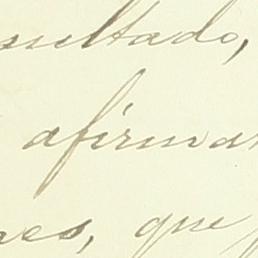 sultado,
afirmar
nes, que